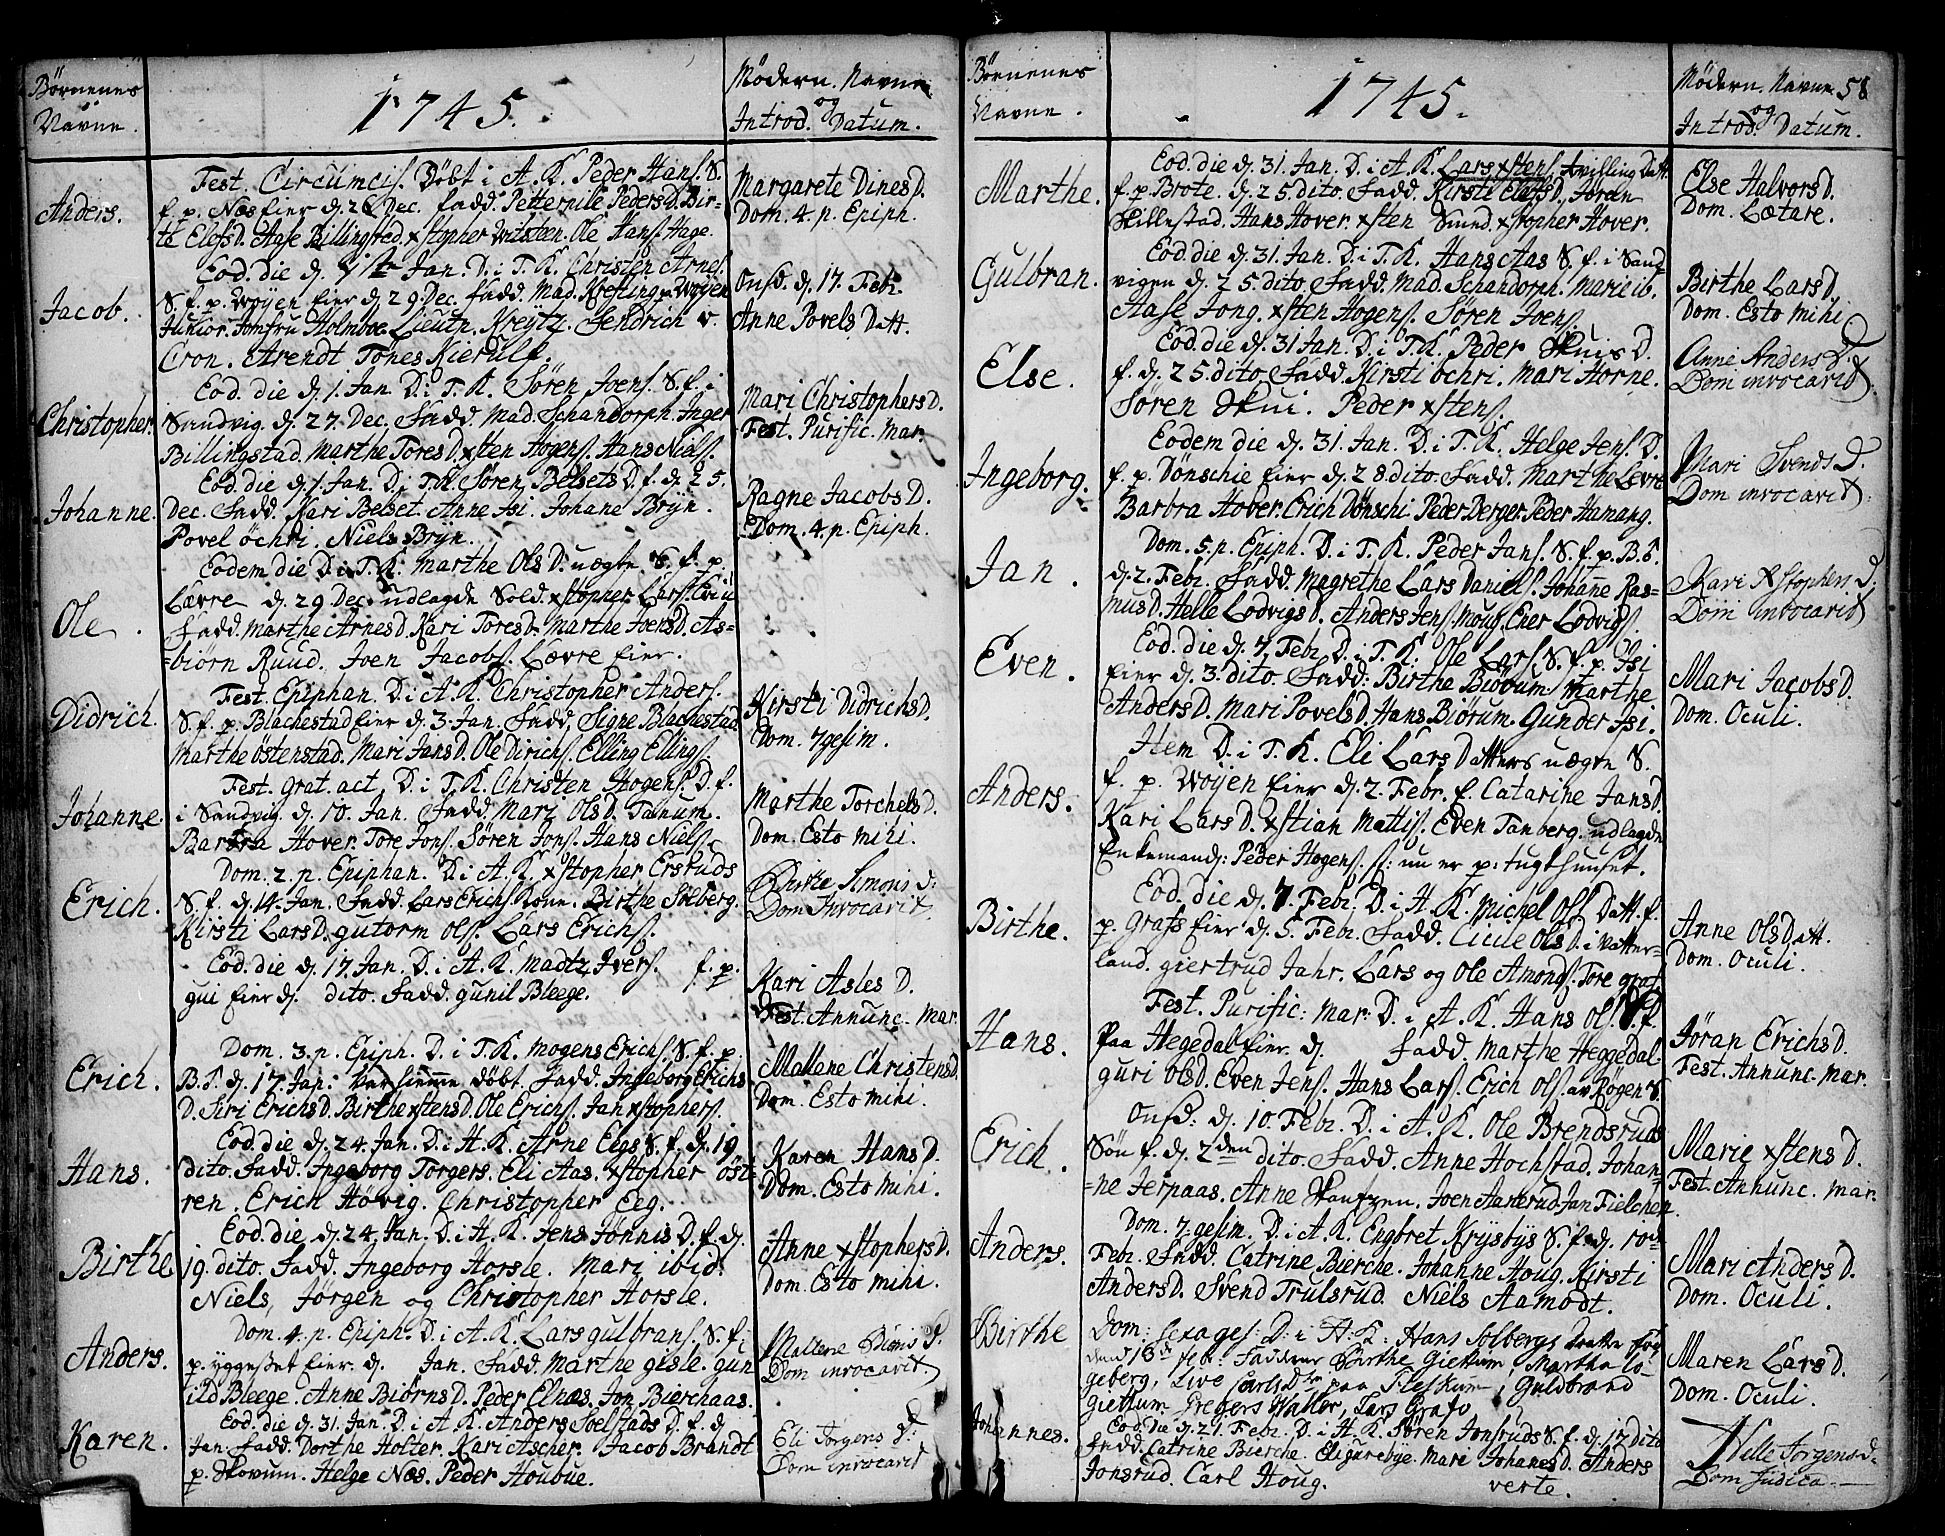 Børnenes
Navne.
1745.
Mødern. Navne
og
Introd. Datum.
Anders.
Fest. Circumcis. Døbt i A. K. Peder Hans. S.
f. p. Næs eier d. 26 Dec. fadd. Petternile PedersD. Bir-
te ElefsD. Aase Billingstad. xstopher Wilsteen. Ole Hans. Hage.
Margarete DinesD.
Dom. 4. p. Epiph.
Jacob.
Eod. die d. 1ste Jan. D. i T. K. Christen Arnes.
S. f. p. Wøyen eier d. 29. Dec. fadd. Mad. Krefting, Wøyen
Junior. Jomfru Holmboe. Lieutn. Kreytz. Hendrich v.
Cron. Arendt Tønes Kierulf.
Onsd. d. 17. Feb.
Anne Povels Datt.
Christopher.
Eod. die d. 1. Jan. D. i T. K. Søren Joens. S. f. i
Sandvig. d. 27. Dec. Fadd. Mad. Schandorph. Inger
Billingstad. Marthe ToresD. xsten Hogens. Hans Niels.
Mari ChristophersD.
Fest. Purific. Mar.
Johanne.
Eod. die d. 1. Jan. D. i T. K. Søren Belsets D. f. d. 25.
Dec. Fadd. Kari Belset. Anne Isi. Johane Bryn.
Povel Øchri. Niels Bryn.
Ragne JacobsD.
Dom. 4. p. Epiph.
Ole.
Eodem die D. i T. K. Marthe OlsD. uægte S. f. p.
Lævre d. 29 Dec. udlagde Sold. xstopher Lars.
Fadd. Marthe ArnesD. Kari ToresD. Marthe JoensD. As-
biørn Ruud. Joen Jacobs. Lævre eier.
Didrich.
Fest. Epiphan. D. i A. K. Christopher Anders.
S. f. p. Blachestad eier d. 3. Jan. Fadd. Signe Blachestad.
Marthe Østenstad. Mari JansD. Ole Dirichs. Elling Ellings.
Kirsti DidrichsD.
Dom. 7gesim.
Johanne.
Fest. grat. act. D. i T. K. Christen Hogens. D. f.
i Sandvig. d. 10. Jan. Fadd. Mari OlsD. Tanum.
Barbra Hover. Tore Jons. Søren Jons. Hans Niels.
Marthe TorchelsD.
Dom. Esto mihi.
Erich.
Dom. 2. p. Epiphan. D. i A. K. xstopher Erstuds
S. f. d. 14. Jan. Fadd. Lars Erichs. Kone. Birthe Solberg.
Kirsti LarsD. Gutorm Ols. Lars Erichs.
Birthe Simons D:
Dom Invocavit.
Eod. die d. 17. Jan. D. i A. K. Madtz Ivers. f. p.
gui eier d. dito. Fadd. Gunil Bleege.
Kari Asles D.
Fest. Annunc. Mar.
Erich.
Dom. 3. p. Epiph. D. i T. K. Mogens Erichs. S. f. p.
B. S. d. 17. Jan. var hiemme døbt. Fadd. Ingeborg Erichs
D. Siri ErichsD. Birthe xstensD. Ole Erichs. Jan xstophers.
Mallene ChristensD.
Dom. Esto mihi.
Hans.
Eod. die d. 24. Jan. D. i H. K. Arne Eegs S. f. d. 19
dito. Fadd. Ingeborg Torgers. Eli Aas. xstopher Øst-
ren. Erich Høvig. Christopher Eeg.
Karen HansD.
Dom. Esto mihi.
Birthe
Eod. die d. 24. Jan. D. i H. K. Jens Jønnis D. f. d.
19. dito. Fadd. Ingeborg Horsle. Mari ibid.
Niels, Jørgen og Christopher Horsle.
Anne xstophersD.
Dom. Esto mihi.
Anders.
Dom. 4. p. Epiph. D. i A. K. Lars Gulbrans. S. f.
p. Yggeset eier. d. Jan. Fadd. Marthe Gisle. Gun
ild Bleege. Anne BiørnsD. Peder Elnæs. Jon Bierchaas.
Mallene D.
Dom invocavit.
Karen.
Eod. die d. 31. Jan. D. i A. K. Anders Soelstads D. f. d.
Jan. Fadd. Dorthe Holter. Kari Ascher. Jacob Brandt
p. Skovum. Helge Næs. Peder Houbue.
Eli Jørgens D:
Dom invocavit
Børnenes
Navne.
1745.
Mødern. Navne 58
og
Introd. Datum.
Marthe.
Eod. die d. 31. Jan. D. i A. K. Lars xstens. tvilling Datt.
f. p. Brote. d. 25. dito. Fadd. Kirsti ElefsD. Jøran
Skillestad. Hans Hover. xsten Smed. xstopher Hover.
Else HalvorsD.
Dom. Lætare.
Gulbran.
Eod. die d. 31. Jan. D. i T. K. Hans Aas S. f. i Sand-
vigen d. 25. dito. Fadd. Mad. Schandorph. Marie ib.
Aase Jong. xsten Hogens. Søren Joens.
Birthe LarsD.
Dom. Esto mihi
Else.
Eod. die d. 31 Jan. D. i T. K. Peder Skuis D.
f. d. 25. dito. Fadd. Kirsti Øchri. Mari Horne.
Søren Skui. Peder xstens.
Anne Anders D.
Dom invocavit.
Ingeborg.
Eodem die d. 31. Jan. D. i T. K. Helge Jens. D.
f. p. Dønschie eier d. 28. dito. Fadd. Marthe Levre
Barbra Hover. Erich Dønschi. Peder Berger. Peder Hamang.
Mari Svends D.
Dom invocavit.
Jan.
Dom. 5. p. Epiph. D. i T. K. Peder Jans. S. f. p. B. S.
d. 2. Febr. Fadd. Magrethe Lars Daniels. Johanne Ras-
musD. Helle LodvigsD. Anders Jens. Moug. Ener Lodvigs
Kari Xstophers D.
Dom invocavit
Even.
Eod. die d. 7. Febr. D. i T. K. Ole Lars. S. f. p. Isi
eier d. 3. dito. Fadd: Birthe Biørum. Marthe
AndersD. Mari PovelsD. Hans Biørum. Gunder Isi.
Mari JacobsD.
Dom. Oculi.
Anders.
Item D. i T. K. Eli Lars Datters uægte S.
f. p. Wøyen eier d. 2. Febr. f. Catarine JansD.
Kari LarsD. xstian Mattis. Even Tanberg. udlagde
Enkemand: Peder Hogens. s: nu er p: tugthuuset.
Birthe.
Eod. die d. 7. Febr. D. i H. K. Michel Ols Datt. f.
p. Grafs eier d. 5. Febr. Fadd. Cicile OlsD. i Vatter-
land. Giertrud Jahr. Lars og Ole Amonds. Tore Graf.
Anne Ols Datt.
Dom. Oculi.
Hans.
Fest. Purific: Mar: D. i A. K. Hans Ols. S. f.
paa Hegedal eier. d. Fadd. Marthe Heggedal
Guri OlsD. Even Jens. Hans Lars. Erich Ols. av Røgen S.
Jøran ErichsD.
Fest. Annunc. Mar.
Erich.
Onsd: d. 10. Febr. D. i A. K. Ole Brendsruds
Søn f. d. 2den dito. Fadd. Anne Hochstad. Johan-
ne Jerpaas. Anne Skaufzen. Joen Aanerud. Jan Fielchen.
Marie xstensD.
Fest. Annunc. Mar.
Anders.
Dom. 7. gesim. D. i A. K. Engbret Krysbys S. f. d. 10de
Febr. Fadd. Catrine Bierche. Johanne Houg. Kirsti
AndersD. Svend Trulsrud. Niels Aamodt.
Mari AndersD.
Dom. Oculi.
Birthe
Dom: Sexages: D: i H. K: Hans Solbergs Datter fød
dend 13de feb: Faddere Birthe Giettum, Martha So-
geberg, Live CarlsDtr paa Fleskum, Guldbrand
Giettum, Gregers Waller, Lars Grafv
Maren LarsD.
Dom. Oculi.
Johannes.
Eod. die d. 21. Febr. D. i H. K. Søren Jonsruds S. f. d. 17 dito
Fadd. Catrine Bierche. Eli Garebye. Mari JohanesD. Anders
Jonsrud. Carl Houg.
Helle Jørgens D.
Dom Judica.
verte.